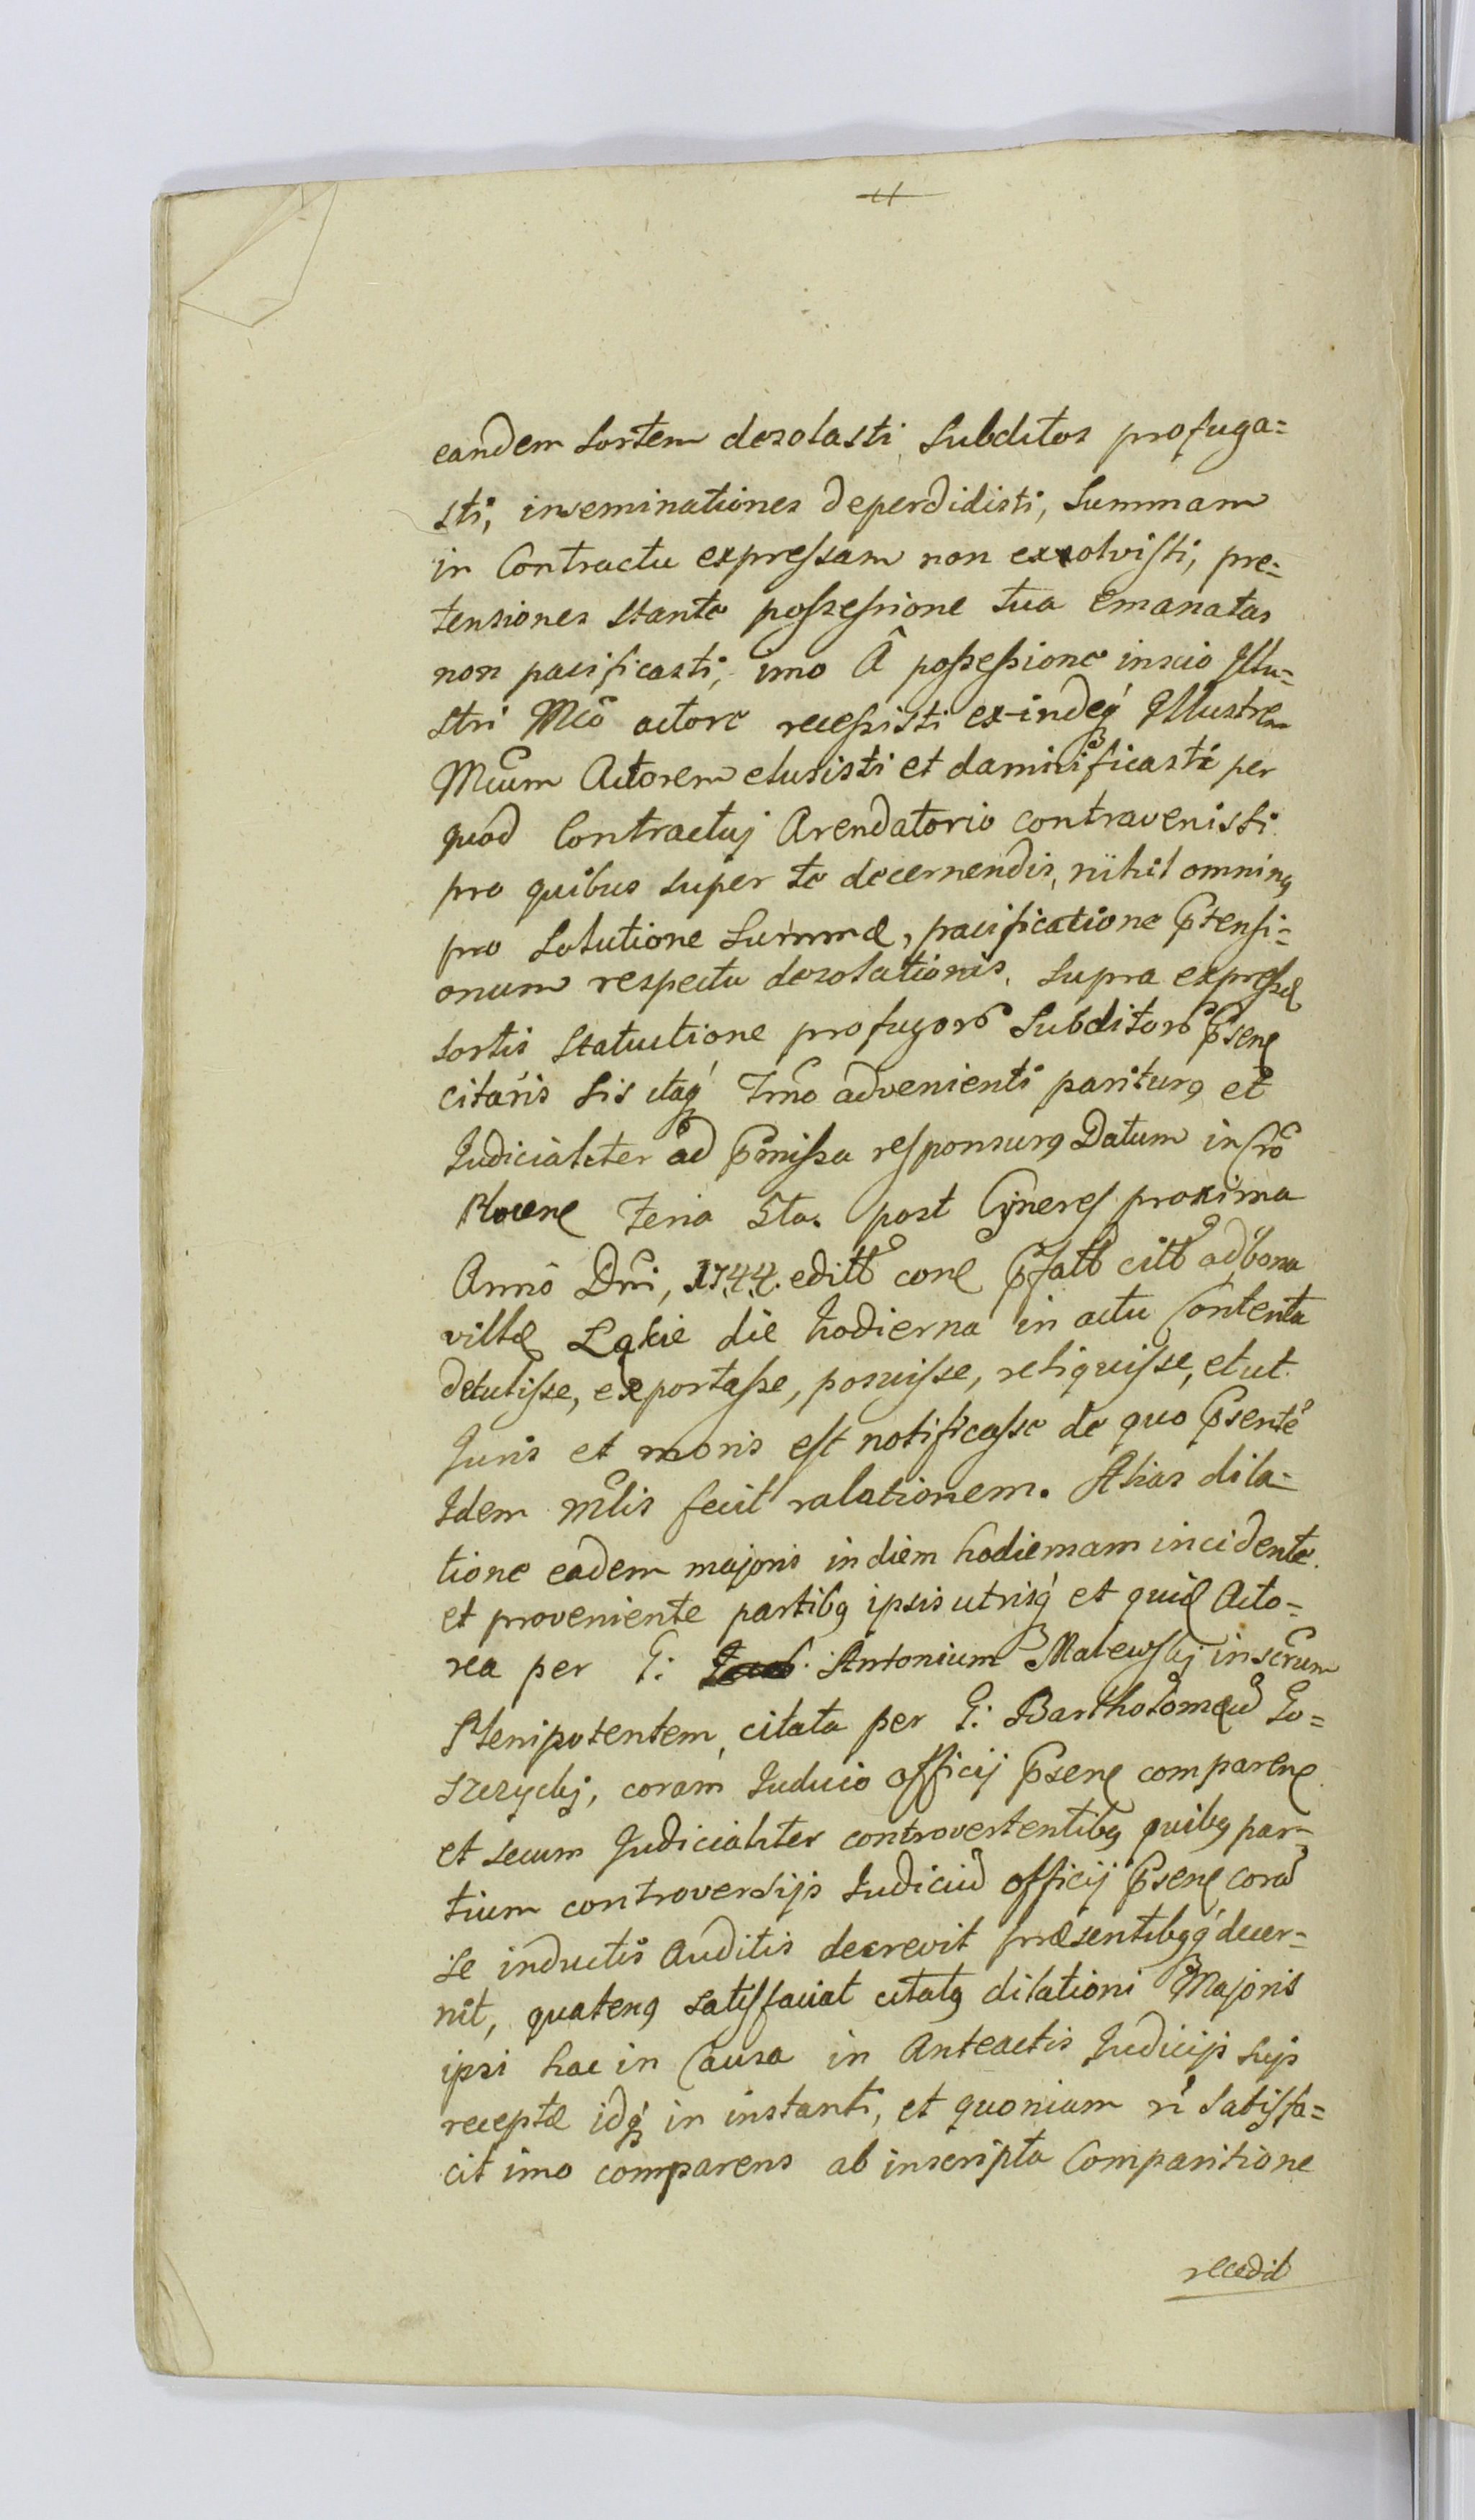 eandem Sortem desolasti, Subditos profuga=
sti, inseminationes deperdidisti, Summam
in Contractu expressam non exolvisti, pre=
tensiones stante possessione tua emanatas
non pacificasti, imo â possessione inscio Illu=
stri Mco actore recessisti ex-indeq́ Illustrem
Mcum Actorem elusisti et damnificasti per
quod Contractuj Arendatorio contravenisti
pro quibus super te decernendis, nihil omninq
pro Solutione Summæ, pacificatione Ptensi=
onum respectu desolationis, supra expressæ
sortis Statuitione profugorū Subditorū Psene
citaris sis itaq́ Trno advenienti pariturq et
Judicialiter ad Pmissa responsurq Datum in Cro
Plocene Feria 5ta. post Cijneres proxima
Anno Dni, 1744. editt cone Pfatt citt ad bona
villæ Łąkie die hodierna in actu Contenta
detulisse, exportasse, posuisse, reliquisse, et ut
Juris et moris est notificasse de quo Psente
Idem mtlis fecit ralationem. Alias dila=
tione eadem majoris in diem hodiernam incidente
et proveniente partibq ipsis utrisq́ et quid Acto=
rea per G: Antonium Malewskj inscrum
Plenipotentem, citata per G: Bartholomæū Go=
szczyckj, coram Judicio officij Psene comparene
et secum Judicialiter controvertentibq quibq par=
tium controversijs Judiciū officij Psene corā
se inductis Auditis decrevit præsentibqq́ decer=
nit, quatenq satisfaciat citatq dilationi Majoris
ipsi hac in Causa in Anteactis Judicijs Sujs
receptæ idq́ in instanti, et quoniam n̄ Satisfa=
cit imo comparens ab inscripta Comparitione
recedit